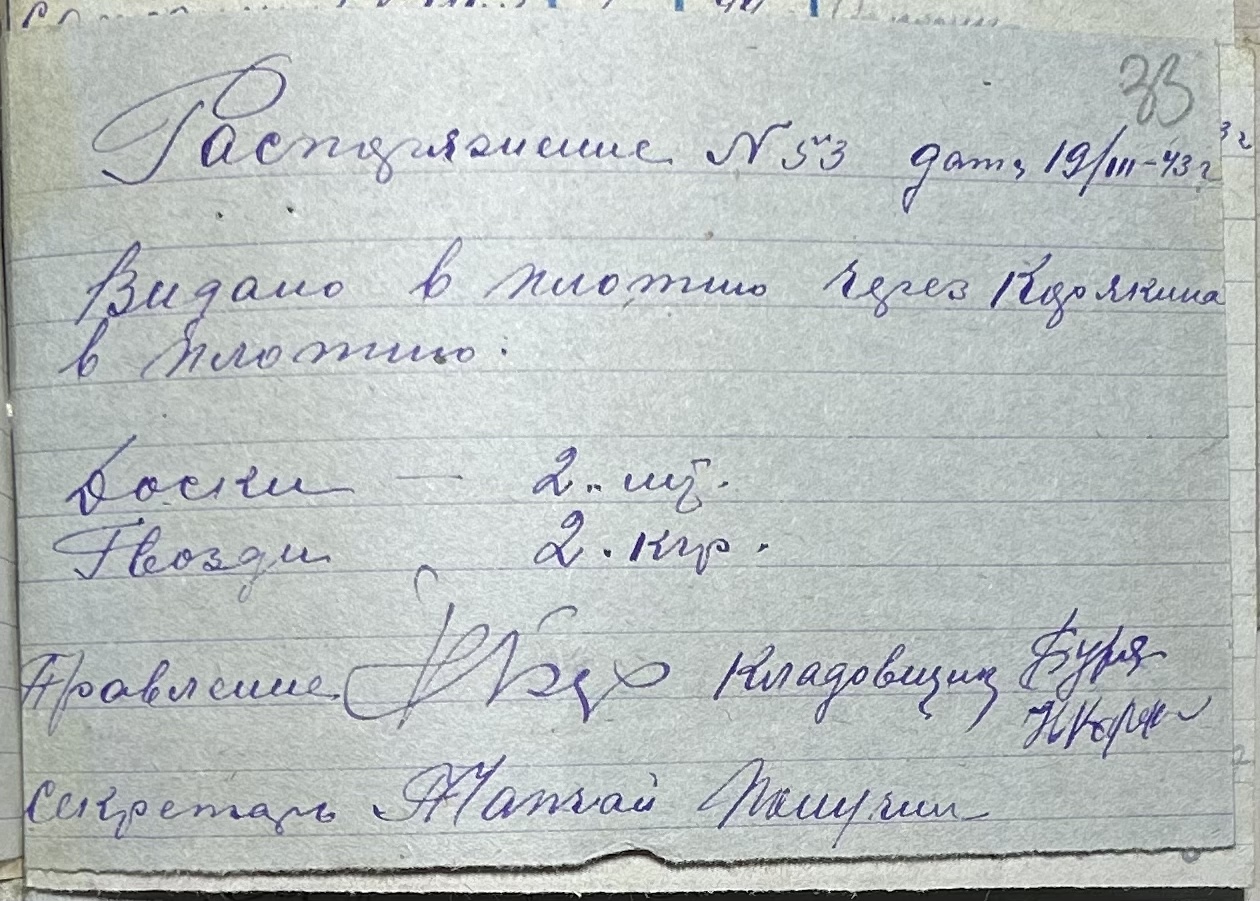 33
Распоряжение N 53 дата 19/III-43 г
Видано в плотню через Корякина
в плотню.
Доски — 2 шт.
Гвозди 2. кгр.
Правление Кладовщик Буря
Секретарь Получил